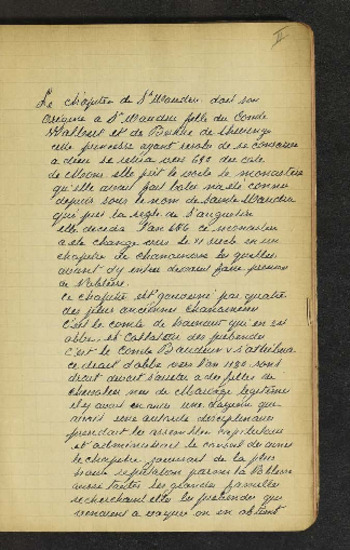 II
Le chapitre de Ste Waudru doit son
origine a Ste Waudru fille du Comte
Walbert et de
cette princesse ayant resolu de se consacrer
a dieu se retira vers 650 du cote
de Mons elle prit le voile le monastère
qu'elle avait fait batir na été connu
depuis sous le nom de Sainte Waudru
que prit la regle de St augustin
elle deceda l'an 686 ce monastere
a ete change vers le 11 siecle en un
chapitre de chanoinesses les quelles
avant d'y entrer devaient faire preuve
de Noblesse.
ce chapitre est gouverné par quatre
des plus anciennes chanoinesses
C'est le comte de hainaut qui en est
abbé et Collateur des prebendes
C'est le Comte Bauduin V s'attribua
ce droit d'abbé vers l'an 1180 sont
droit devait s'
chevalier nee de Mariage legitime
il y avait en une doyenne qui
avait sous autorite disciplinaire
pendant les assemblées capitulaires
et administraient le conseil des
le chapitre jouissait de la plus
haute reputation parmi la Noblesse
aussi toutes les grandes familles
recherchaient elles les prebendes qui
venaient a vaquer on en obtient